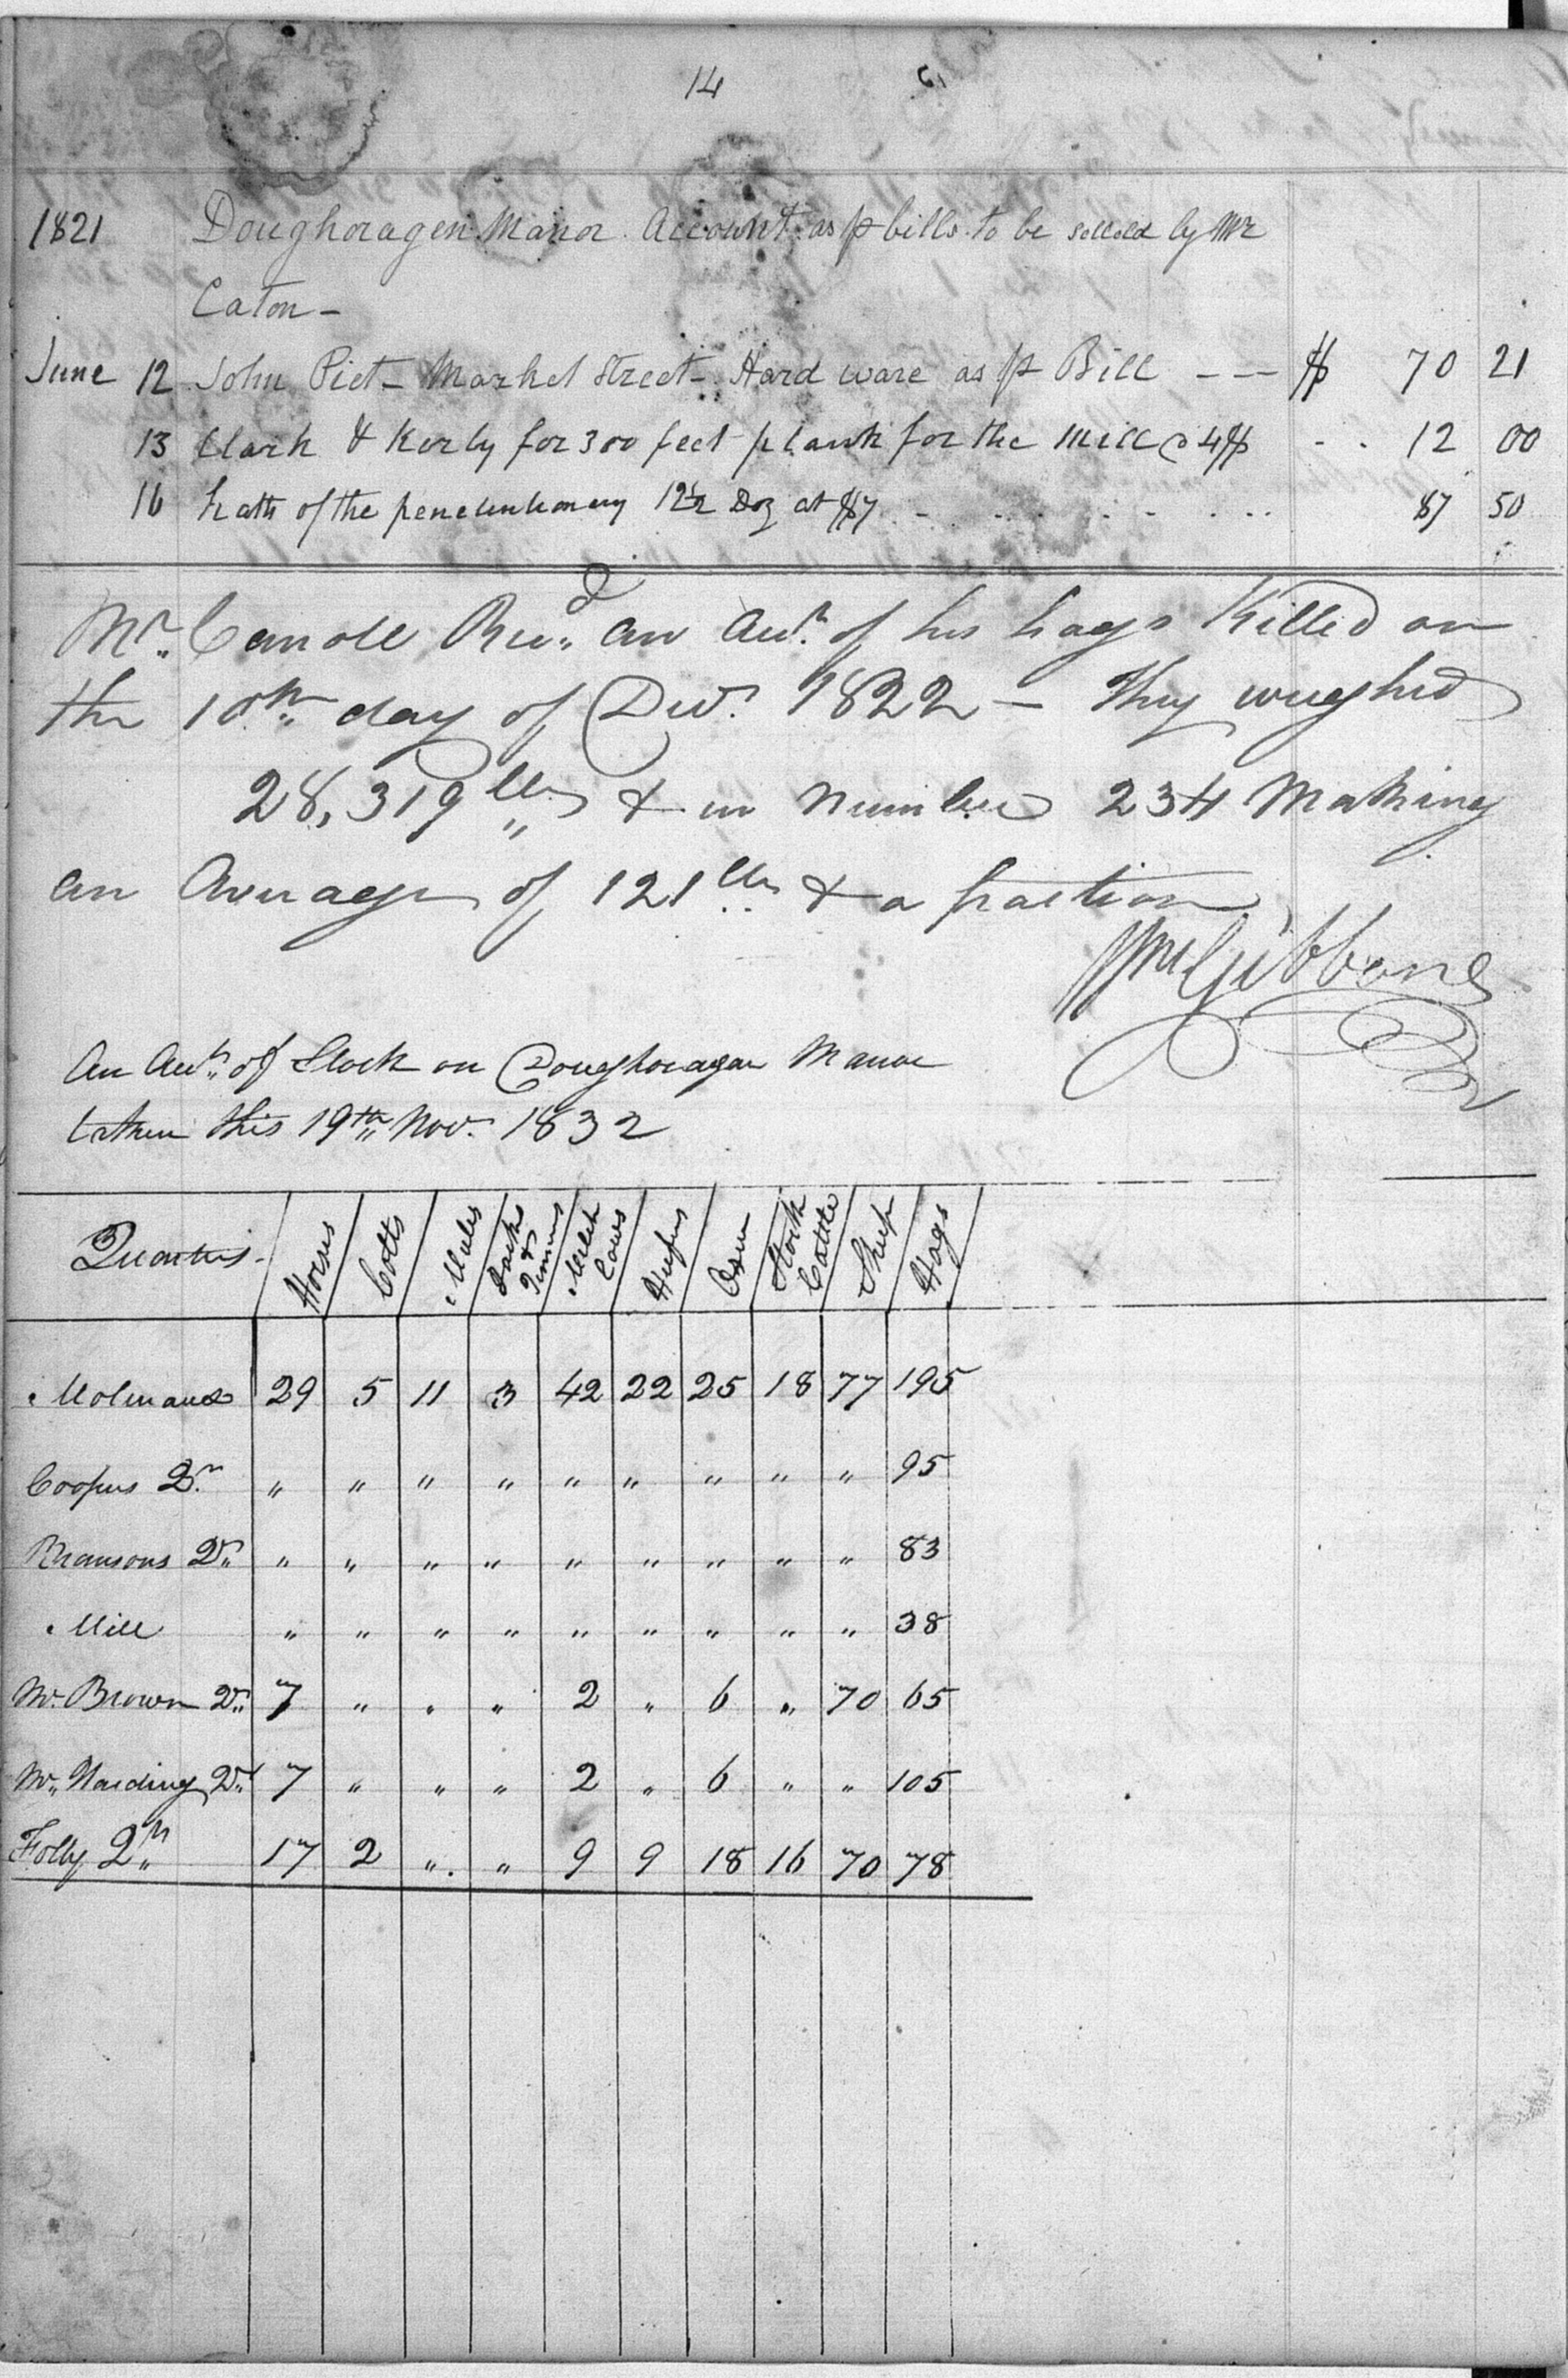 14
1821 Doughoragen Manor Account as p bills to be settled by Mr
Caton -
June 12 John Piet - Market Street - Hard ware as p Bill - - - $ 70 21
13 Clark & Kerly for 300 feet plank for the Mill @ 4$ - - 12 00
16 hats of the penetentionary 12½ Doz at $7 - - - 87 50
Mr. Carroll Recd. an Acct. of his hogs Killed on
the 10th day of Decr. 1822 - They weighed
28,319 lbs & in Number 234 Making
an Average of 121 lbs & a fraction
Wm Gibbons
An Acct. of Stock on Doughoragan Manor
taken this 19th Nov. 1832
Quarters - Horses Colts Mules Jacks & Jennies Milch Cows Heifers Oxen Stock Cattle Sheep Hogs
Molinaux 29 5 11 3 42 22 25 18 77 195
Coopers Qr. " " " " " " " " " 95
Ransons Qr. " " " " " " " " " 83
Mill " " " " " " " " " 38
Mr. Brown Qr. 7 " " " 2 " 6 " 70 65
Mr. Harding Qr. 7 " " " 2 " 6 " " 105
Folly Qr. 17 2 " " 9 9 18 16 70 78